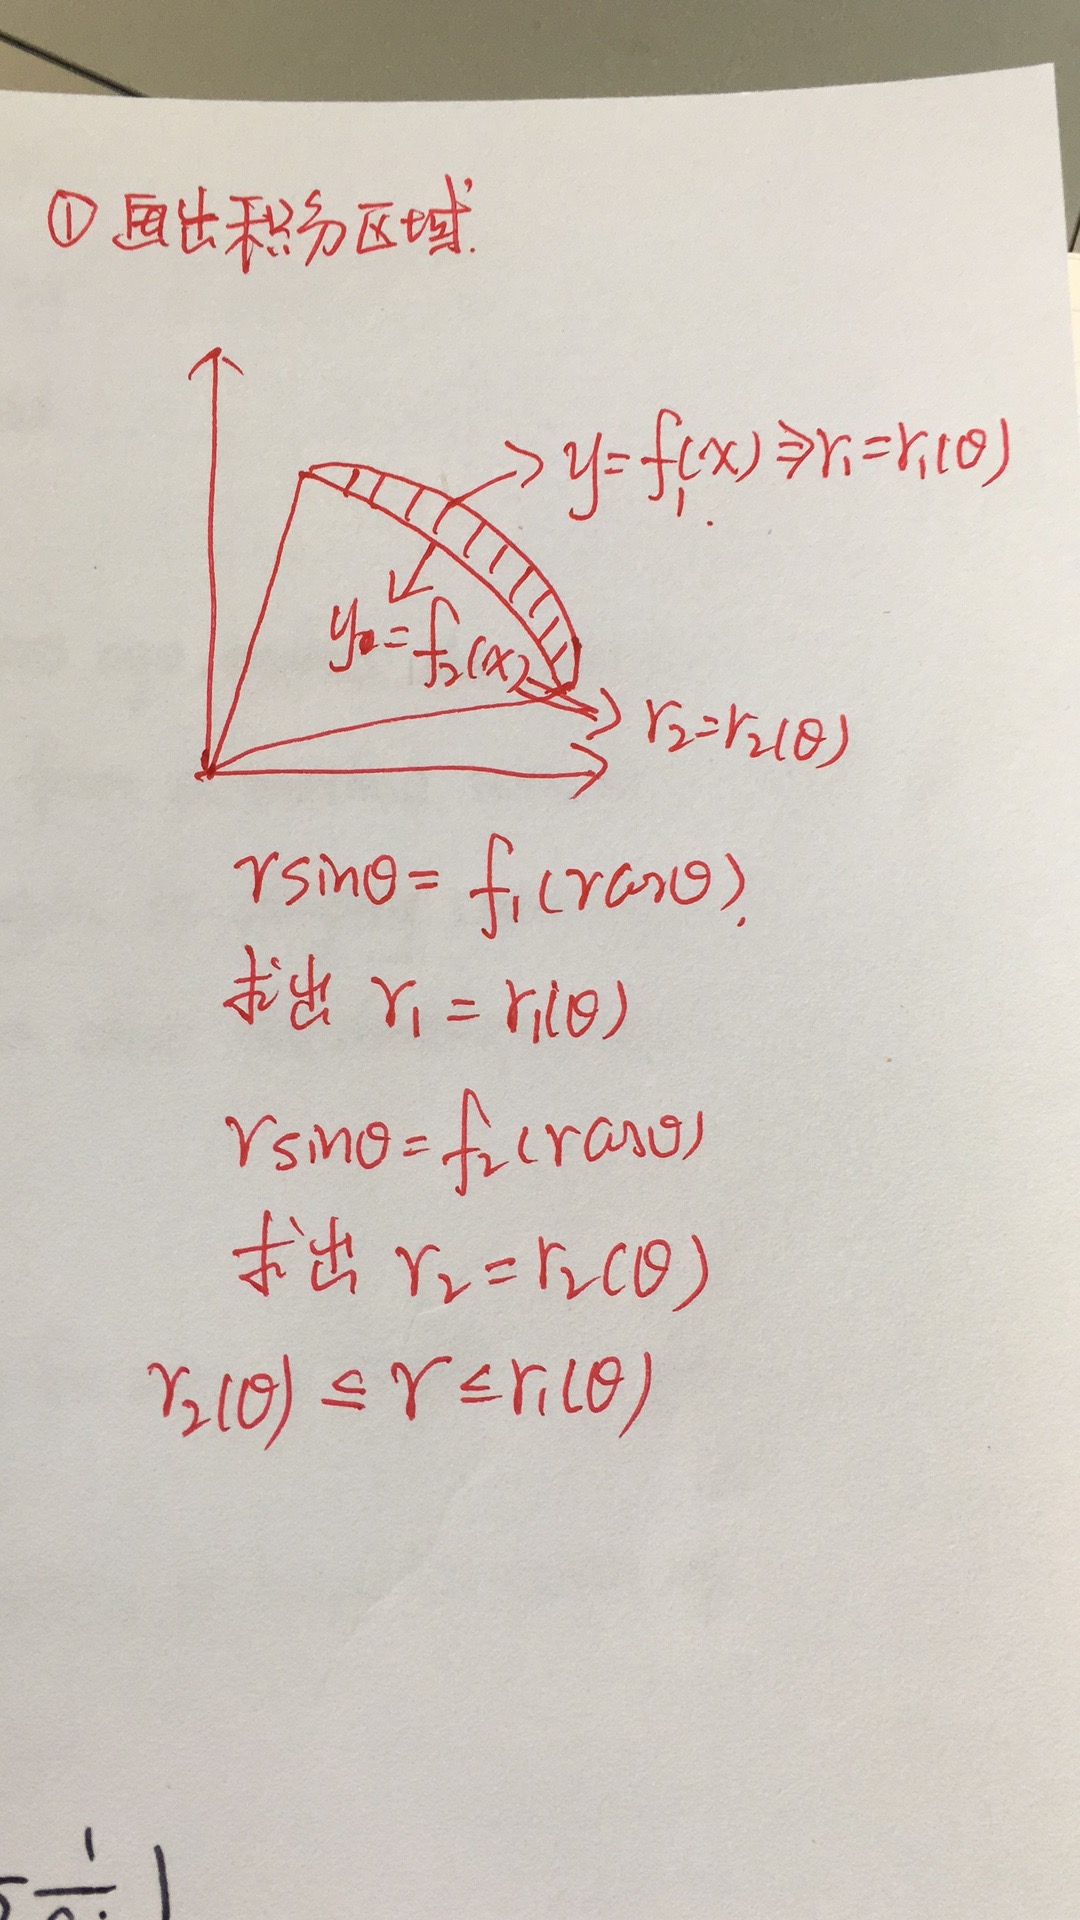 ① 画出积分区域.
y=f₁(x)⇒r₁=r₁(θ)
y₂=f₂(x)
r₂=r₂(θ)
rsinθ=f₁(rcosθ).
求出 r₁=r₁(θ)
rsinθ=f₂(rcosθ)
求出 r₂=r₂(θ)
r₂(θ)≤r≤r₁(θ)